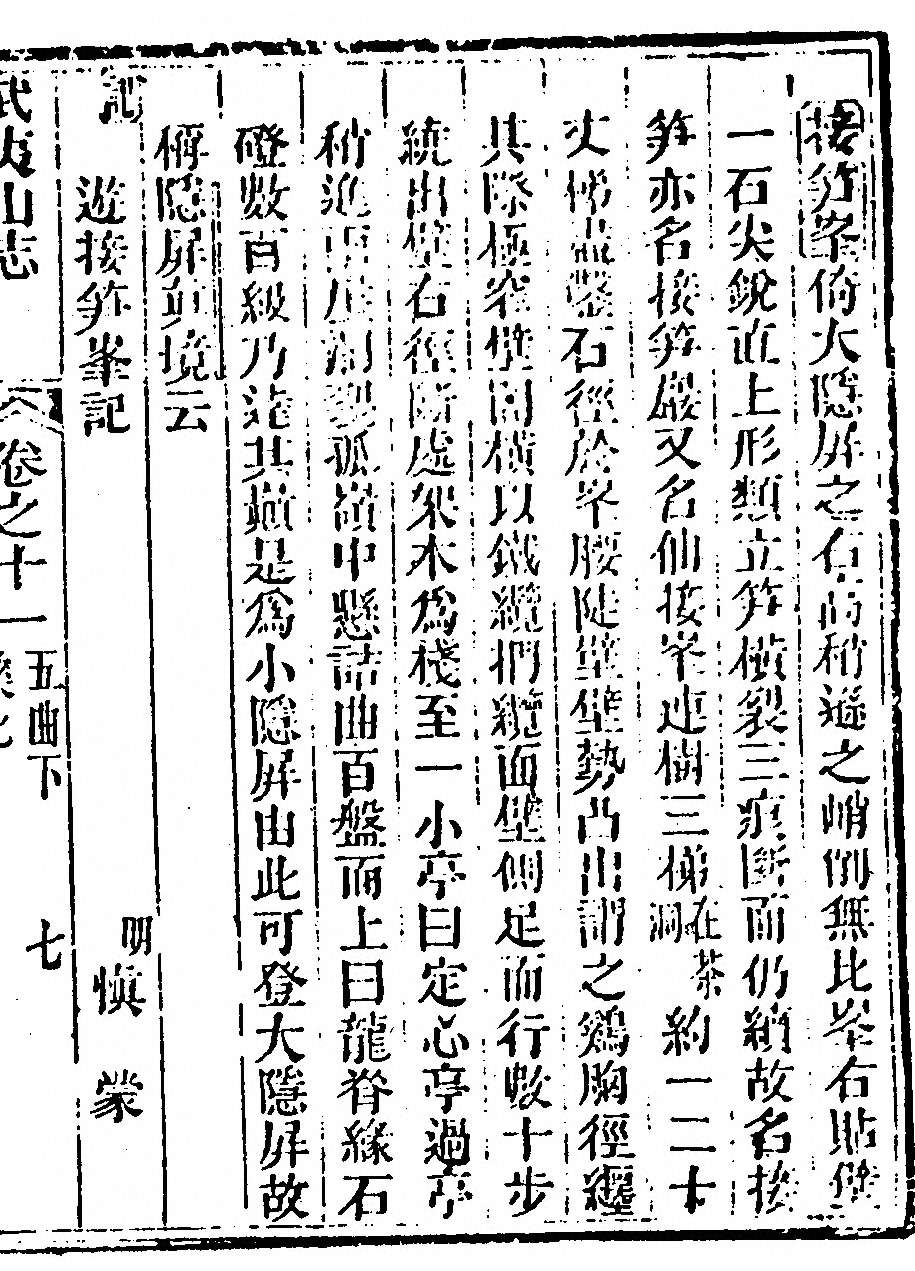 接笋峯倚大隱屏之右高稍遜之峭削無比峯右貼壁
一石尖銳直上形類立笋橫裂三痕斷而仍續故名接
笋亦名接笋巖又名仙接峯連樹三梯在茶洞約一二十
丈梯盡鑿石徑於峯腰陡壁壁勢凸出謂之鷄胸徑纒
其際極窄壁間橫以鐵纜捫纜面壁側足而行數十步
繞出壁右徑斷處架木爲棧至一小亭曰定心亭過亭
稍進兩崖孤嶺中懸詰曲百盤而上曰龍脊緣石
磴數百級乃達其巔是爲小隱屏由此可登大隱屏故
稱隱屏眞境云
記
遊接笋峯記 明 愼蒙
武夷山志 卷之十一 五曲下 七